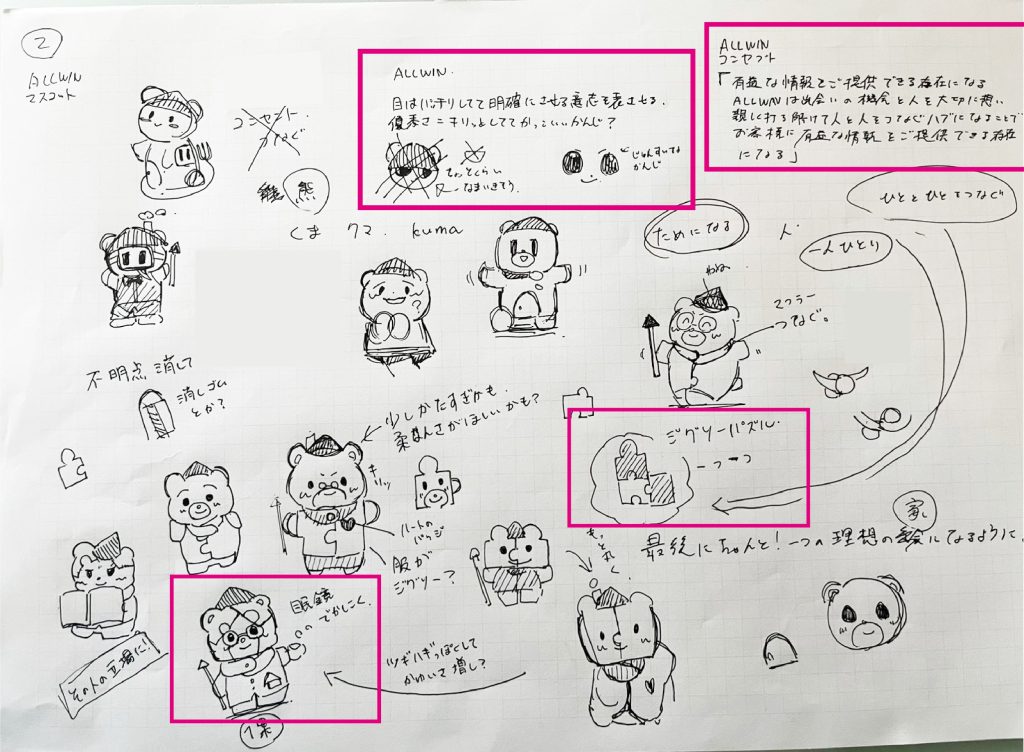 2
ALLWIN
マスコット
コンセント
つなぐ
熊
くま クマ. kuma
ALLWIN.
目はパチリしてて明確にさせる意志を表させる.
優秀さニキリッとしててかっこいいかんじ?
ちょっとくらい
なまいきそう.
じゅんすいな
かんじ
ALLWIN
コンセプト
「有益な情報をご提供できる存在になる
ALLWINは出会いの機会と人を大切に想い
親しく打ち解けて人と人をつなぐハブになることで
お客様に有益な情報をご提供できる存在
になる」
ひととひとをつなぐ
ためになる
人.
一人ひとり
マフラー
つなぐ。
不明点消して
消しゴム
とか?
少しかたすぎかも.
柔なんさがほしいかも?
キリッ
ハートの
バッジ
服が
ジグソー?
ジグソーパズル.
一つ一つ
家
最後にちゃんと!一つの理想の家になるように.
もっと丸く.
眼鏡
でかしこく.
ツギハギっぽくして
かわいさ増し?
その人の立場に!